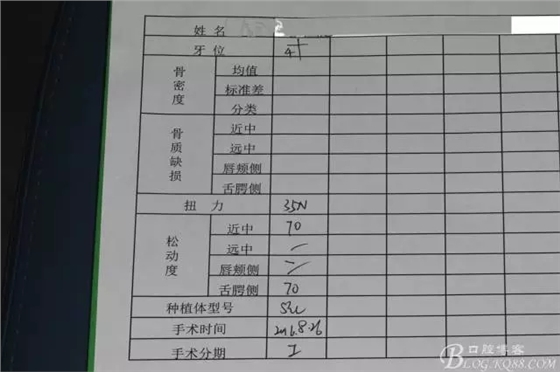 姓名
牙位 4
骨密度 均值
标准差
分类
骨质缺损 近中
远中
唇颊侧
舌腭侧
扭力 35N
松动度 近中 70
远中 —
唇颊侧 —
舌腭侧 70
种植体型号
手术时间 2016.8.26
手术分期 I
口腔博客
BLOG.KQ88.COM